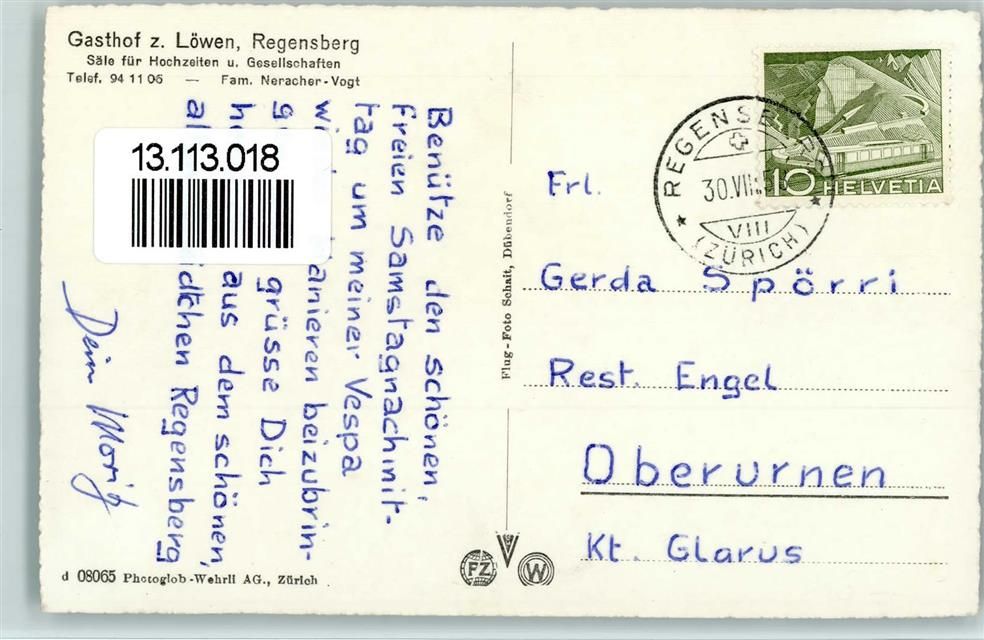 Gasthof z. Löwen, Regensberg
Säle für Hochzeiten u. Gesellschaften
Telef. 94 11 06 — Fam. Neracher-Vogt
13.113.018
Benütze den schönen,
freien Samstagnachmit-
tag um meiner Vespa
anieren beizubrin-
grüsse Dich
aus dem schönen,
dtchen Regensberg
Dein Moritz
d 08065 Photoglob-Wehrli AG., Zürich
Flug-Foto Schait, Dübendorf
PZ
W
REGENSBERG
30.VIII.5
VIII
(ZÜRICH)
10 HELVETIA
Frl.
Gerda Spörri
Rest. Engel
Oberurnen
Kt. Glarus